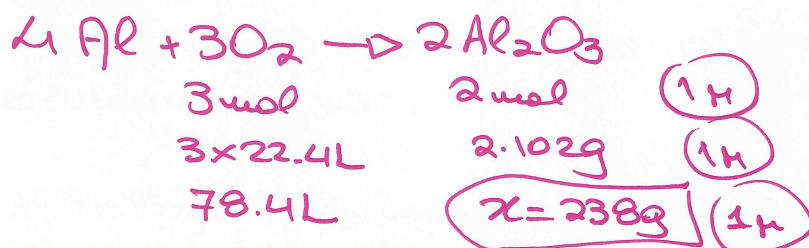 4 Al + 3O₂ → 2 Al₂O₃
3 mol 2 mol 1μ
3×22.4L 2.102g 1μ
78.4L x=238g 1μ